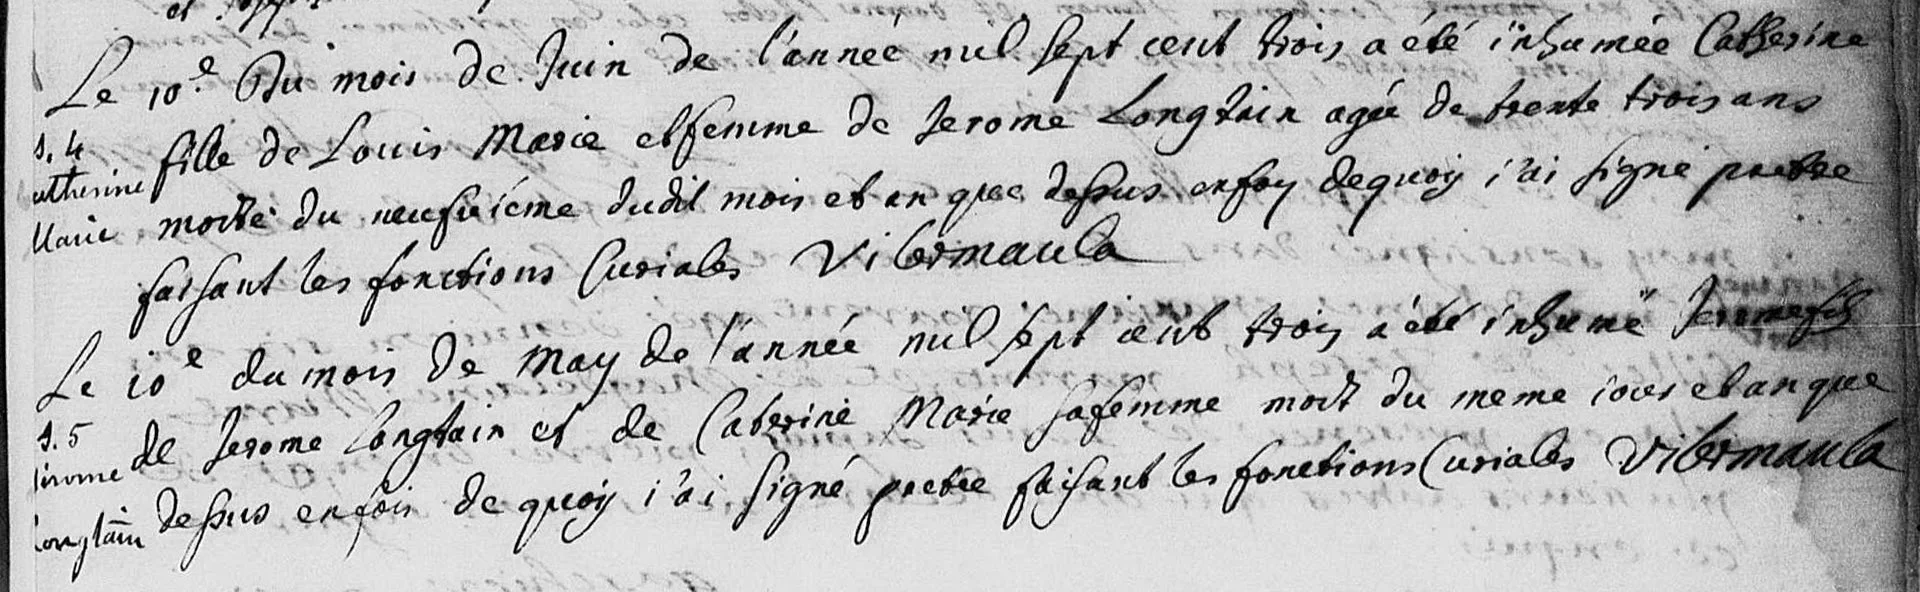 Le 10.e Du mois de Juin de l'année mil sept cent trois a été inhumée Catherine
s. 4
fille de Louis Marie et femme de Jerome Longtain agée de trente trois ans
atherine
morte du neufuiéme dudit mois et an que dessus en foy dequoy j'ai signé prebtre
Marie
faisant les fonctions Curiales Vilermaula
Le 10e du mois de May de l'année mil sept cent trois a été inhumé Jerome fils
s. 5
de Jerome Longtain et de Caterine Marie sa femme mort du meme iour et an que
jerome
dessus en fois de quoy j'ai signé prebtre faisant les fonctions Curiales Vilermaula
Longtain